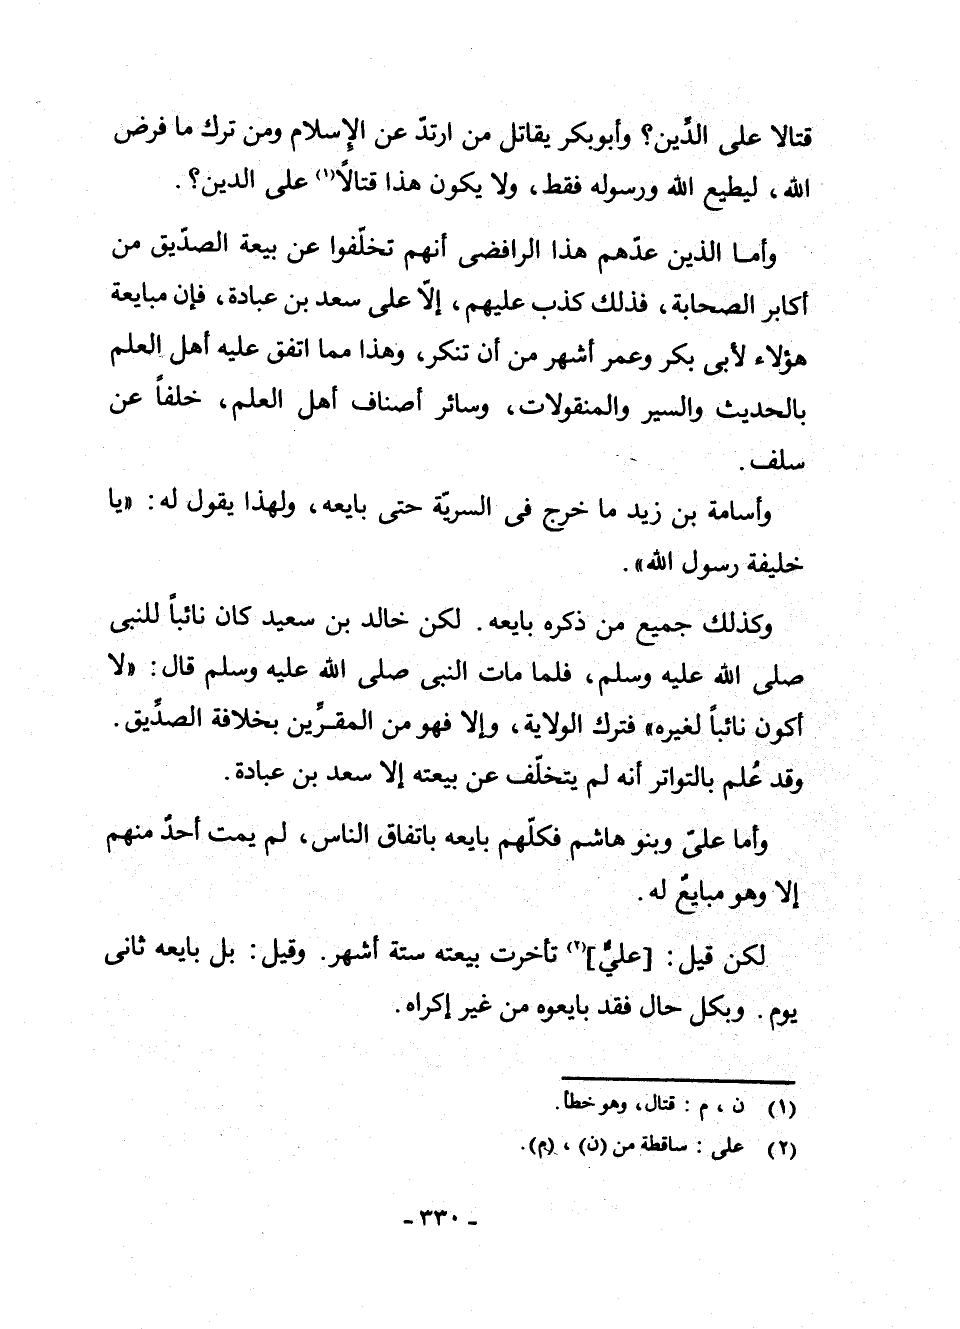 قتالا على الدِّين؟ وأبوبكر يقاتل من ارتدّ عن الإسلام ومن ترك ما فرض
الله، ليطيع الله ورسوله فقط، ولا يكون هذا قتالاً(١) على الدين؟.
وأمـا الذين عدّهم هذا الرافضى أنهم تخلّفوا عن بيعة الصدّيق من
أكابر الصحابة، فذلك كذب عليهم، إلاّ على سعد بن عبادة، فإن مبايعة
هؤلاء لأبى بكر وعمر أشهر من أن تنكر، وهذا مما اتفق عليه أهل العلم
بالحديث والسير والمنقولات، وسائر أصناف أهل العلم، خلفاً عن
سلف.
وأسامة بن زيد ما خرج فى السريّة حتى بايعه، ولهذا يقول له: «يا
خليفة رسول الله».
وكذلك جميع من ذكره بايعه. لكن خالد بن سعيد كان نائباً للنبى
صلى الله عليه وسلم، فلما مات النبى صلى الله عليه وسلم قال: «لا
أكون نائباً لغيره» فترك الولاية، وإلا فهو من المقـرِّين بخلافة الصدِّيق.
وقد عُلم بالتواتر أنه لم يتخلّف عن بيعته إلا سعد بن عبادة.
وأما علىّ وبنو هاشم فكلّهم بايعه باتفاق الناس، لم يمت أحدٌ منهم
إلا وهو مبايعٌ له.
لكن قيل: [عليٌّ](٢) تأخرت بيعته ستة أشهر. وقيل: بل بايعه ثانى
يوم. وبكل حال فقد بايعوه من غير إكراه.
(١) ن ، م : قتال، وهو خطأ.
(٢) على : ساقطة من (ن) ، (م).
- ٣٣٠ -